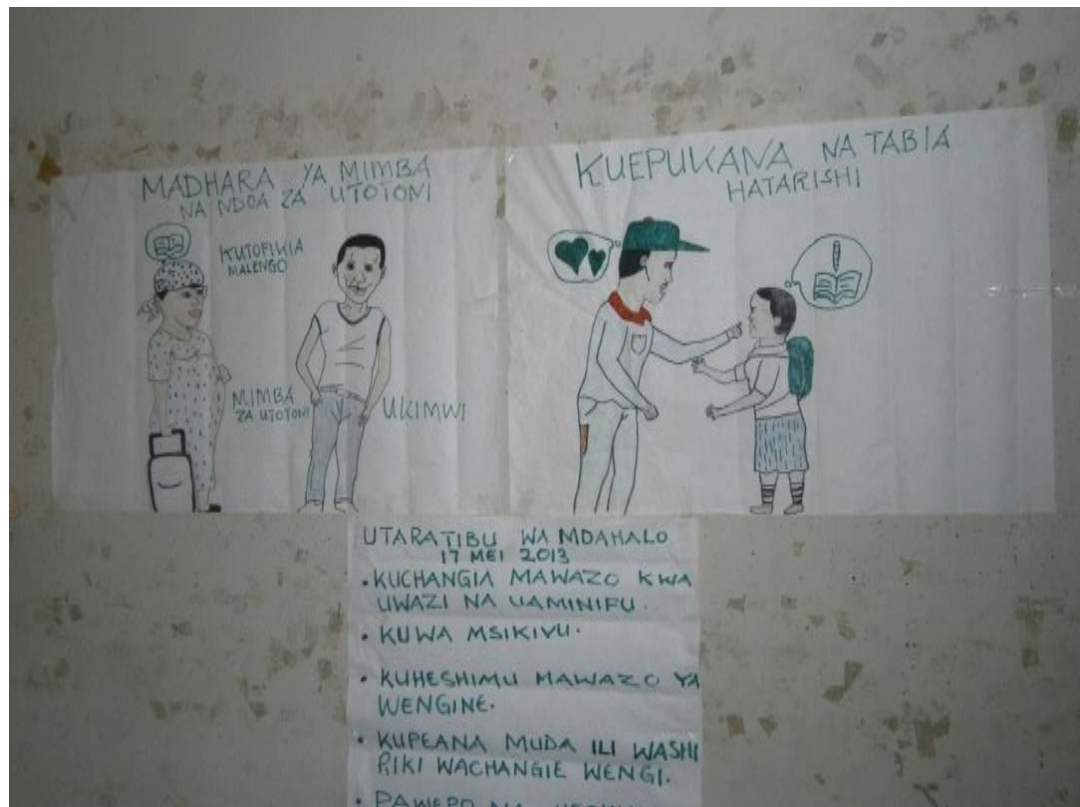 MADHARA YA MIMBA
NA NDOA ZA UTOTONI
KUTOFIKIA
MALENGO
MIMBA
ZA UTOTONI
UKIMWI
KUEPUKANA NA TABIA
HATARISHI
UTARATIBU WA MDAHALO
17 MEI 2013
• KUCHANGIA MAWAZO KWA
UWAZI NA UAMINIFU.
• KUWA MSIKIVU.
• KUHESHIMU MAWAZO YA
WENGINE.
• KUPEANA MUDA ILI WASHI
RIKI WACHANGIE WENGI.
• PAWEPO NA